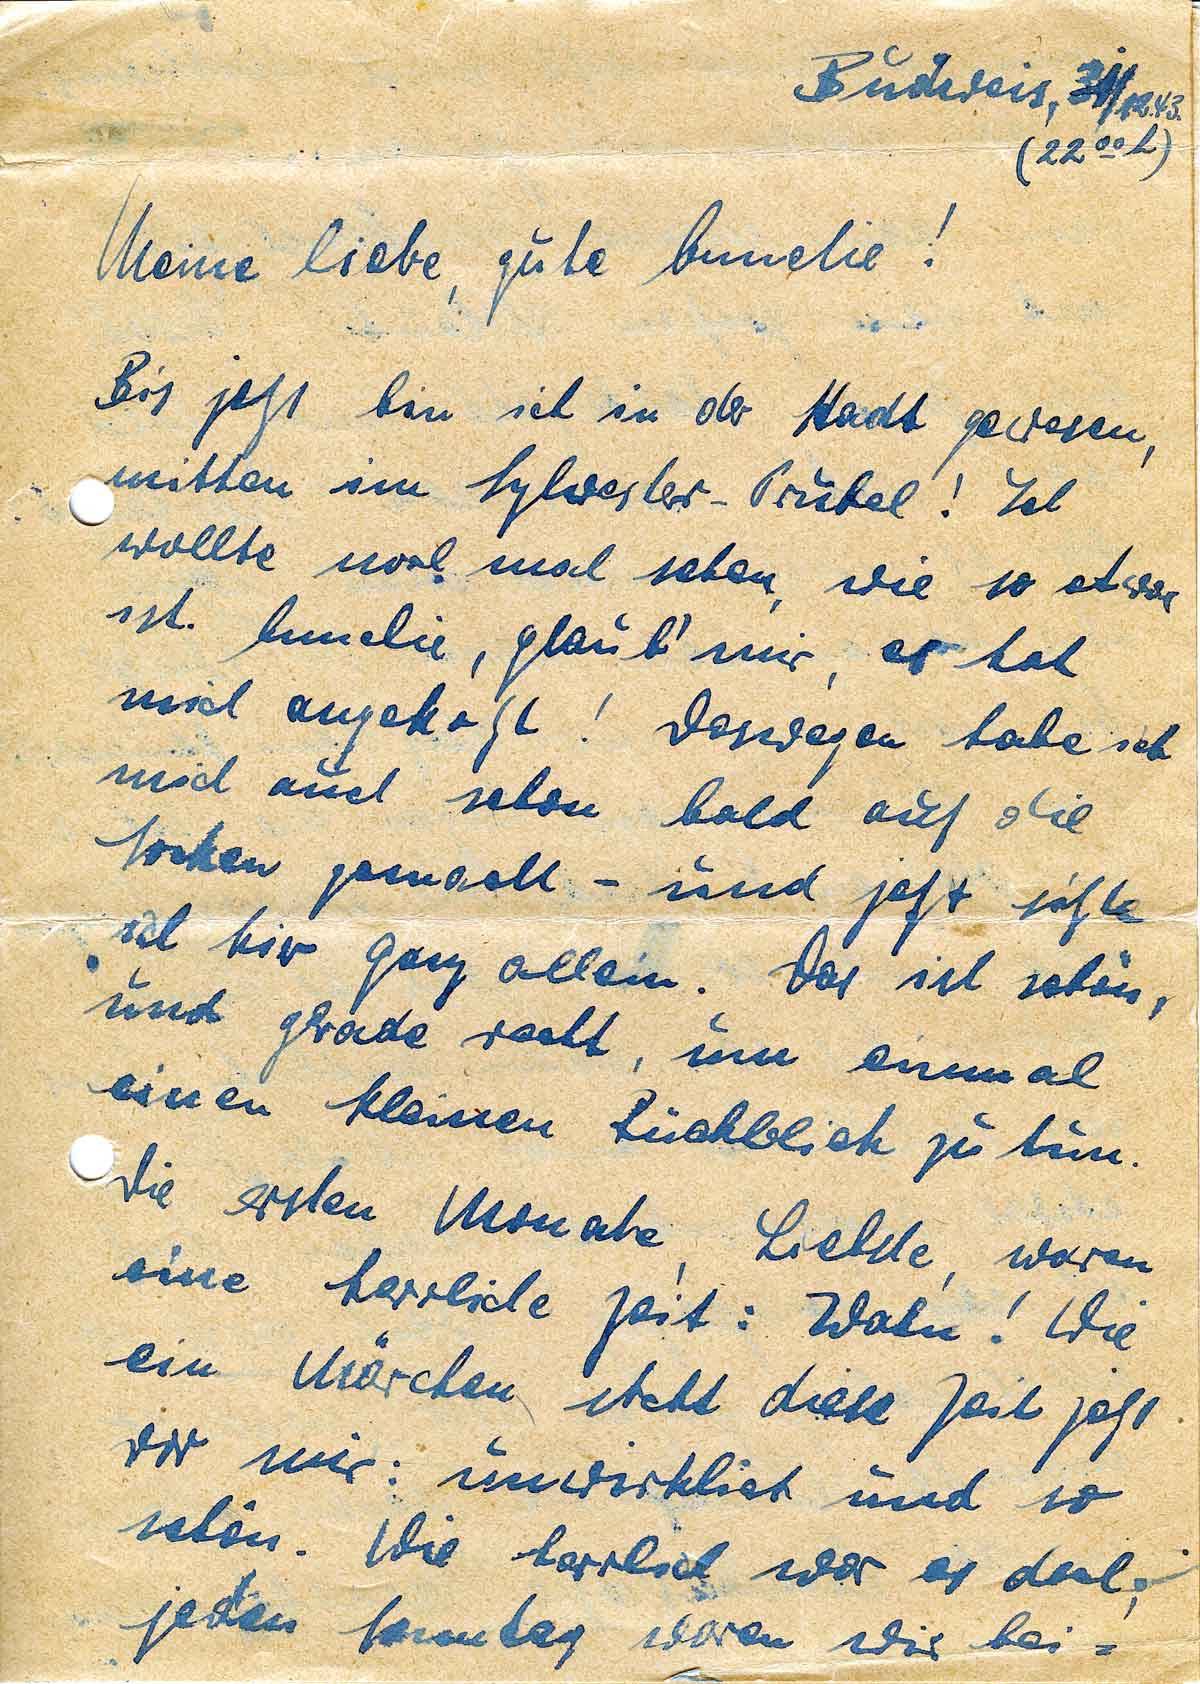 Budweis, 31/12.43.
(22⁰⁰ h)
Meine liebe, gute Annelie!
Bis jetzt bin ich in der Stadt gewesen,
mitten im Sylvester-Trubel! Ich
wollte noch mal sehen, wie so etwas
ist. Annelie, glaub' mir, es hat
mich angekotzt! Deswegen habe ich
mich auch schon bald auf die
Socken gemacht – und jetzt sitze
ich hier ganz allein. Das ist schön,
und gerade recht, um einmal
einen kleinen Rückblick zu tun.
Die ersten Monate, Liebste, waren
eine herrliche Zeit: Wahn! Wie
ein Märchen steht diese Zeit jetzt
vor mir: unwirklich und so
schön. Wie herrlich war es doch;
jeden Sonntag waren wir bei=